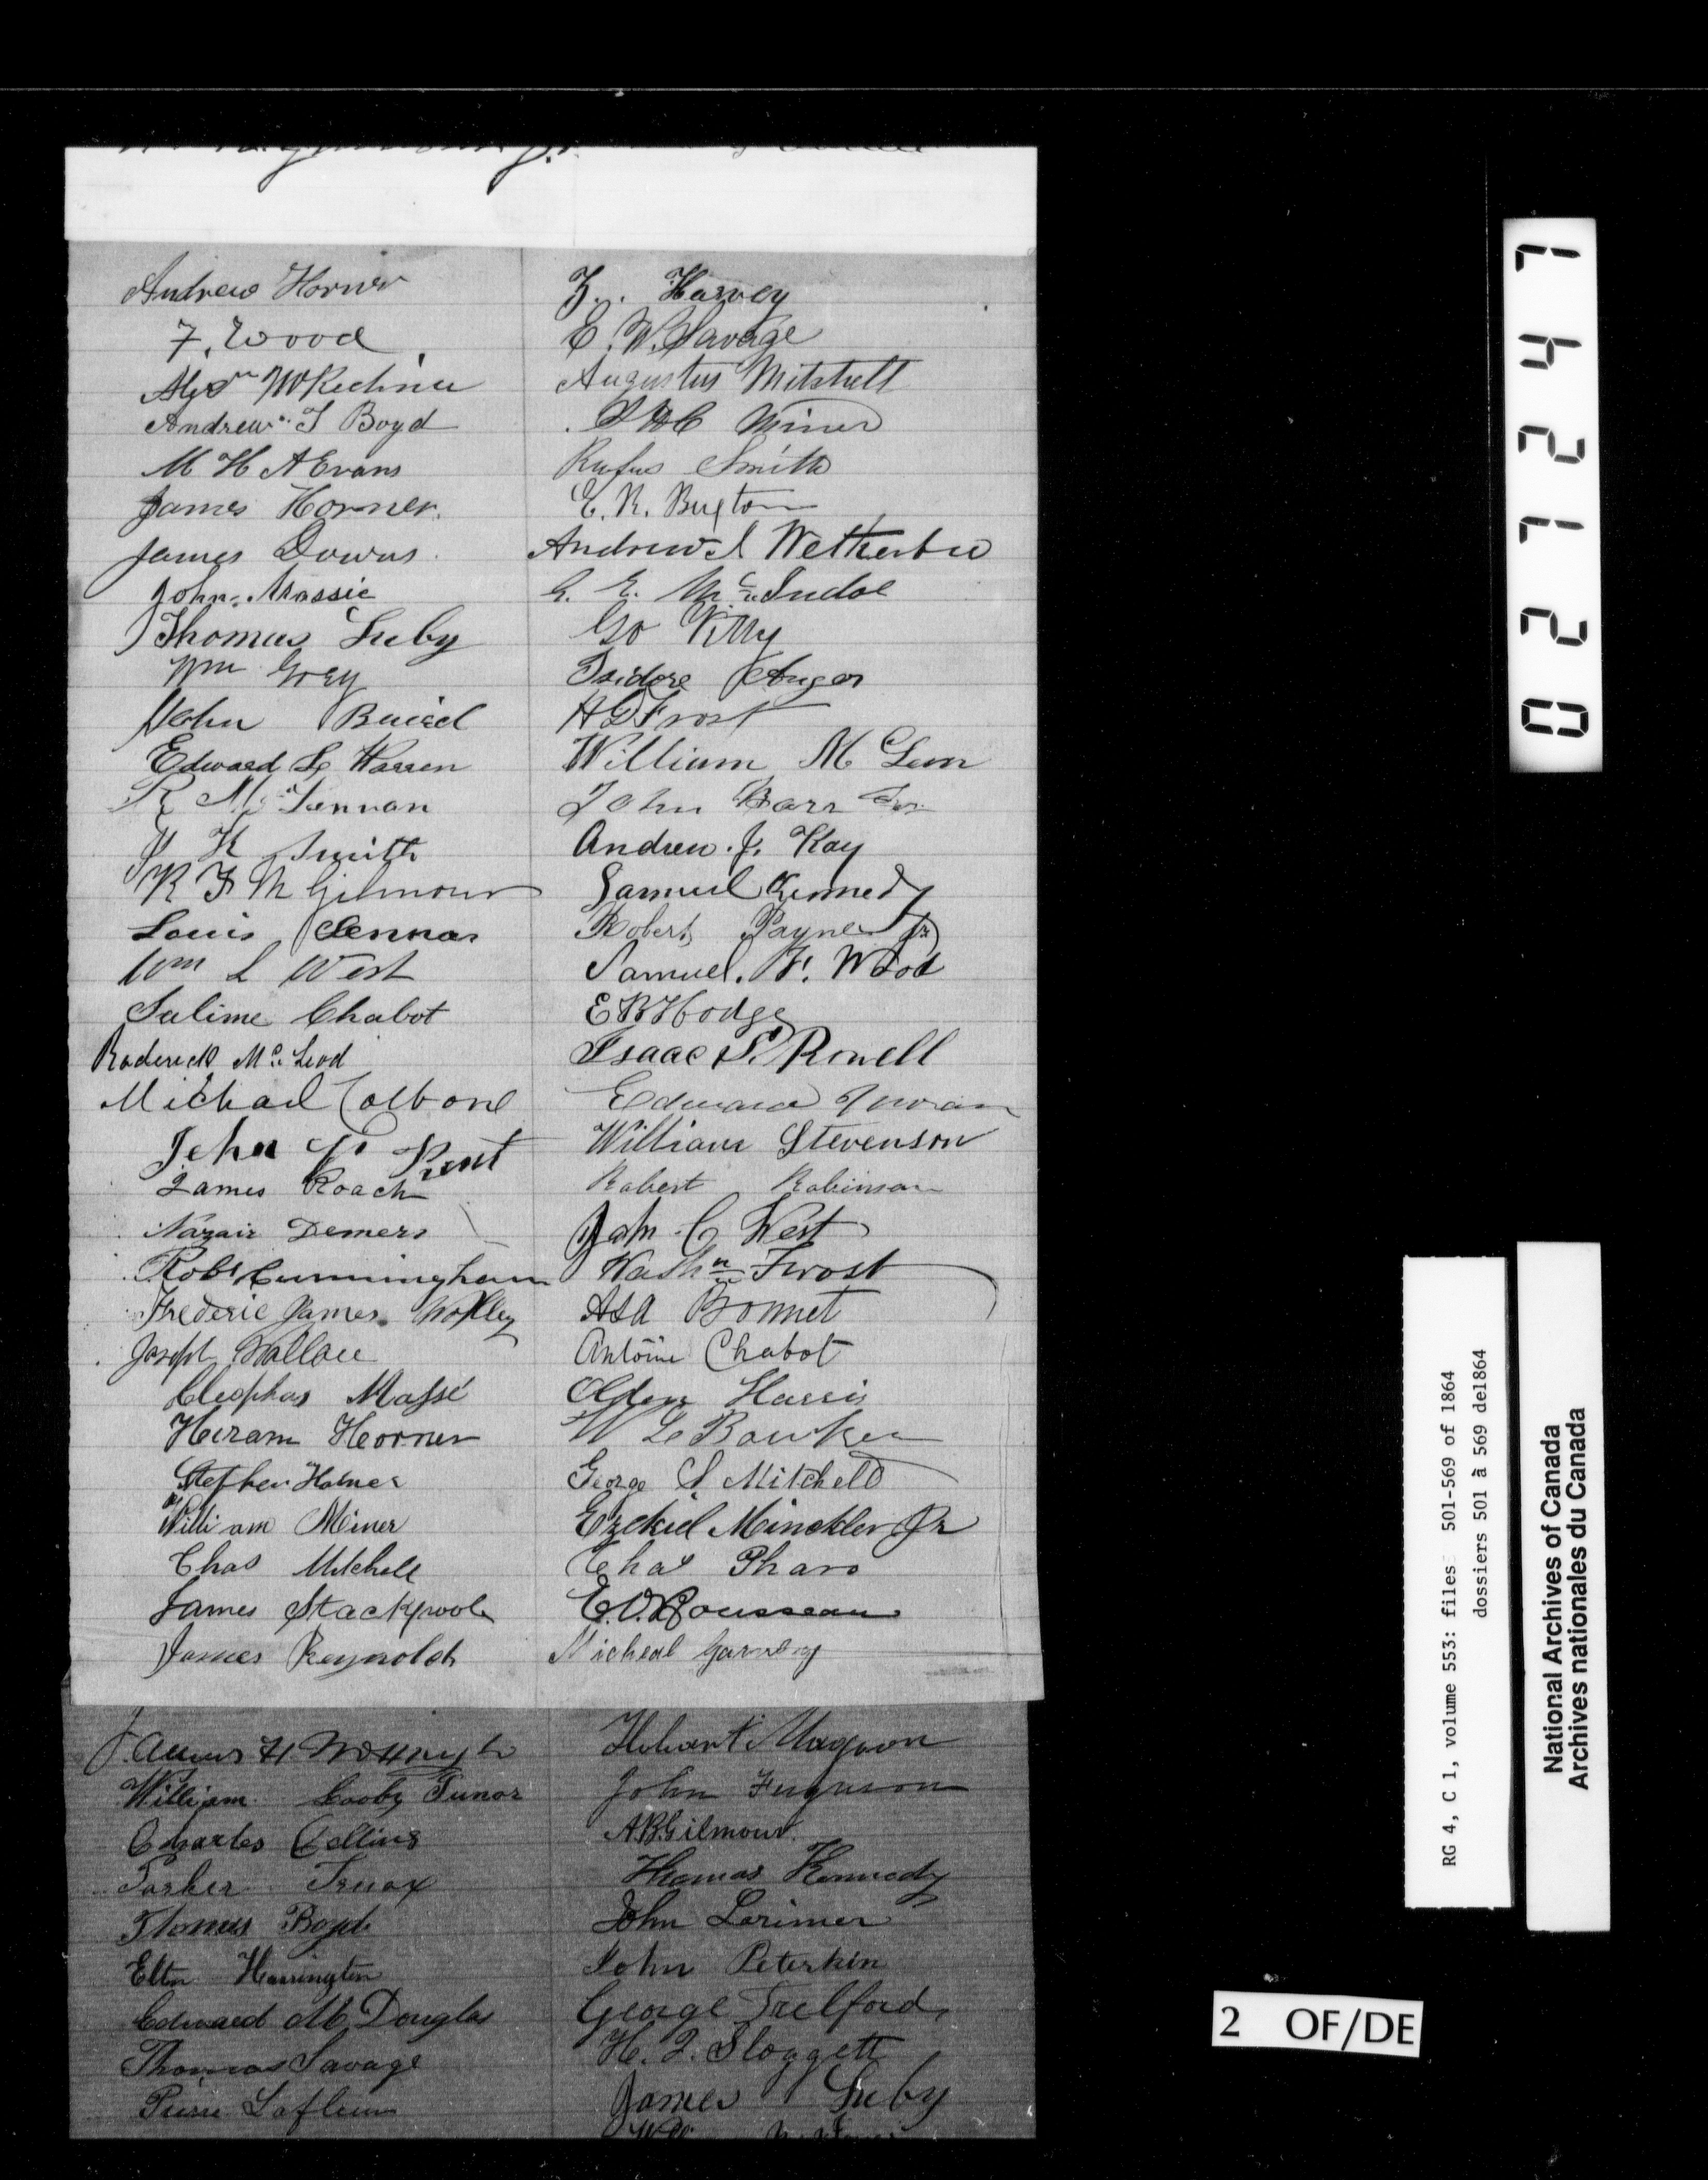 Andrew Horner
F. Wood
Andrew T Boyd
M H A Evans
James Horner.
James Downs.
John Massie
Thomas Luby
Wm Grey
John Baird
Edward L Warren
R Mc Lennan
H Smith
R F M Gilmour
Louis
Wm L West
Salime Chabot
Roderick Mc Leod
Michael
John
James Roach
Nazair Demers
Robt Cunningham
Frederic James
Joseph Wallace
Cleophas Massé
Hiram Horner
Stephen Horner
William Miner
Chas Mitchell
James Stackpool
James Reynolds
Harvey
E. W. Savage
Augustus Mitchell
Miner
Rufus Smith
E. R. Buxton
Andrew S Wetherbee
G. E. Mc Indoe
Isidore Auger
H G Frost
William Mc Lem
John Barr
Andrew. J. Kay
Samuel Kennedy
Robert Payne Jr
Samuel. F. Wood
E B Hodge
Isaac S. Rowell
Edward
William Stevenson
Robert Robinson
John C West
Washn Frost
Asa Bonnet
Antoine Chabot
Alden Harris
W L Bowker
George S. Mitchell
Ezekiel Minckler Jr
Chas Pharo
E. V. Rousseau
Micheal
James H
William Cooby
Charles Collins
Parker Truax
Thomas Boyd
Elton Harrington
Edward Mc Douglas
Thomas Savage
Pierre Lafleur
Hobart Magoon
John Ferguson
A. B. Gilmour.
Thomas Kennedy
John Lorimer
John Peterkin
George Telford
H. J. Sloggett
James Luby
027247
RG 4, C 1, volume 553: files 501-569 of 1864
dossiers 501 à 569 de1864
National Archives of Canada
Archives nationales du Canada
2 OF/DE